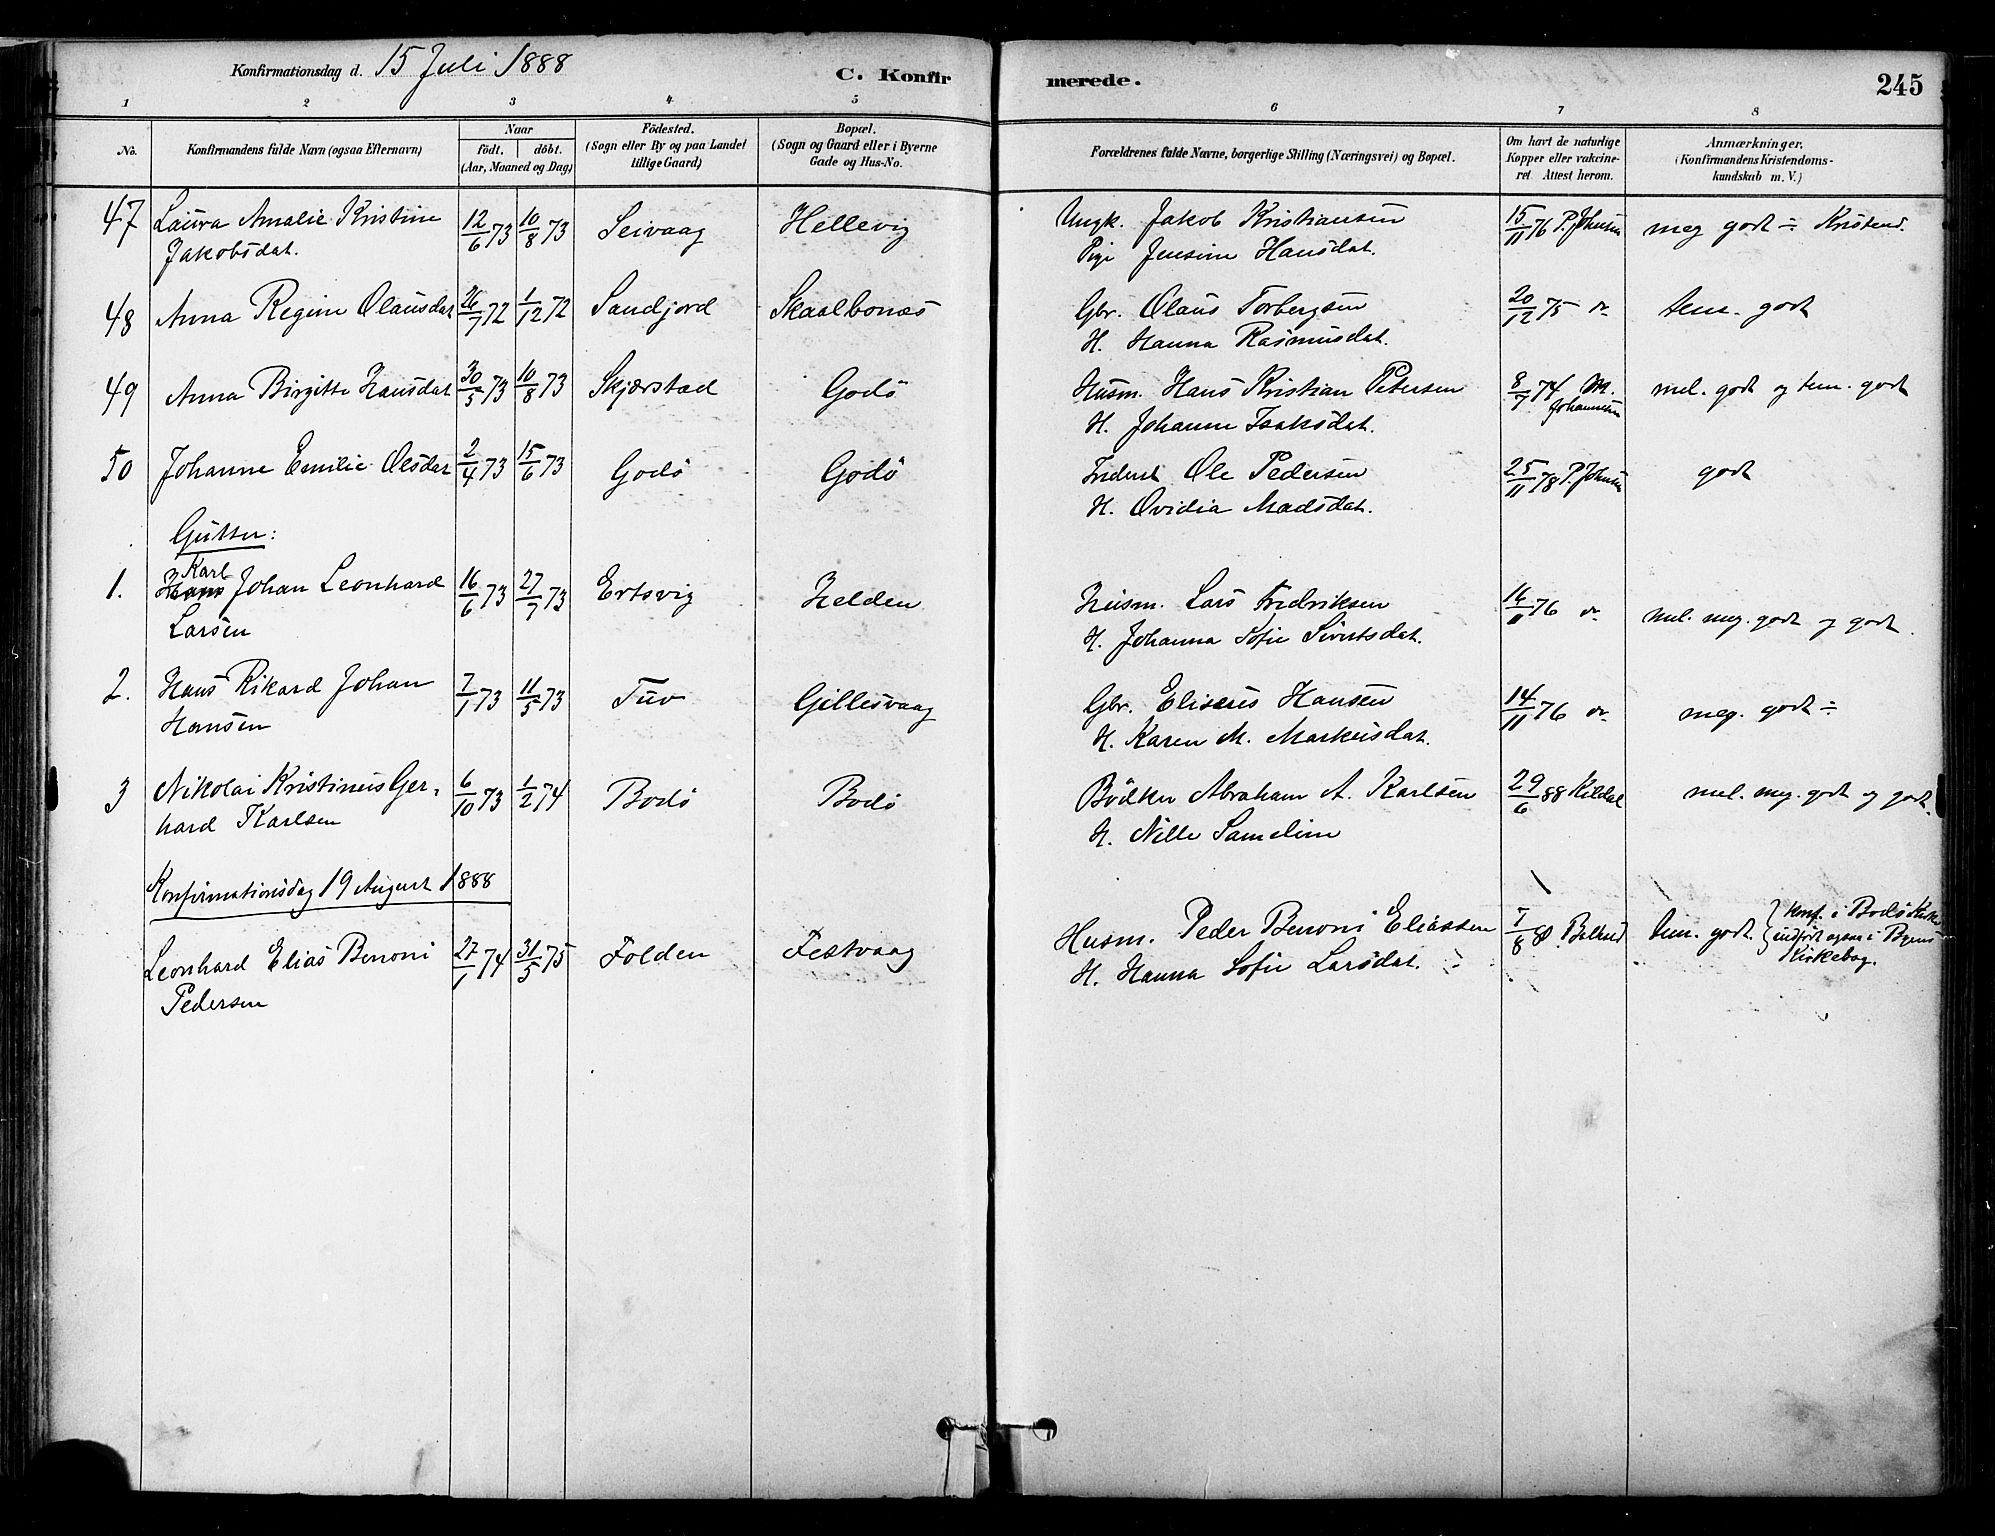 Konfirmationsdag d. 15 Juli 1888
C. Konfirmerede.
245
1 2 3 4 5 6 7 8
No.
Konfirmandens fulde Navn (ogsaa Efternavn)
Naar
födt. döbt.
(Aar, Maaned og Dag)
Födested.
(Sogn eller By og paa Landet
tillige Gaard)
Bopæl.
(Sogn og Gaard eller i Byerne
Gade og Hus-No.
Forældrenes fulde Navne, borgerlige Stilling (Næringsvei) og Bopæl.
Om havt de naturlige
Kopper eller vakcine-
ret Attest herom.
Anmærkninger.
(Konfirmandens Kristendoms-
kundskab m. V.)
47 Laura Amalie Kristine 12/6 73 10/8 73 Seivaag Hellevig Ungk. Jakob Kristiansen 15/11 76 P. Johnsen meg godt ÷ Kristend.
Jakobsdat. Pige Jensine Hansdat.
48 Anna Regine Olausdat 26/7 72 1/12 72 Sandjord Skaalbones Gbr. Olaus Torbergsen 20/12 75 do tem. godt
H. Hanna Rasmusdat.
49 Anna Birgitte Hansdat 30/5 73 10/8 73 Skjærstad Godö Husm. Hans Kristian Petersen 8/7 74 M. mel. godt og tem. godt
H. Johanne Isaksdat. Johannesen
50 Johanne Emilie Olsdat 2/4 73 15/6 73 Godö Godö Inderst Ole Pedersen 25/11 78 P. Johnsen godt
H. Ovidia Madsdat.
Gutter:
Karl
1. Hans Johan Leonhard 16/6 73 27/7 73 Ertsvig Zelden Husm. Lars Fredriksen 16/11 76 do mel. meg. godt og godt.
Larsen H. Johanna Sofie Sivertsdat.
2. Hans Rikard Johan 7/1 73 11/5 73 Tuv Gillesvaag Gbr. Eliseus Hansen 14/11 76 do meg. godt ÷
Hansen H. Karen M. Markusdat.
3 Nikolai Kristinus Ger- 6/10 73 1/2 74 Bodö Bodö Bödker Abraham A. Karlsen 29/6 88 Kildal mel. meg. godt og godt.
hard Karlsen H. Nille Sameline
Konfirmationsdag 19 August 1888
Leonhard Elias Benoni 27/1 74 31/5 75 Folden Festvaag Husm. Peder Benoni Eliassen 7/8 80 tem. godt. Konf. i Bodö Kirke
Pedersen H. Hanna Sofie Larsdat. indfört ogsaa i Byens
Kirkebog.